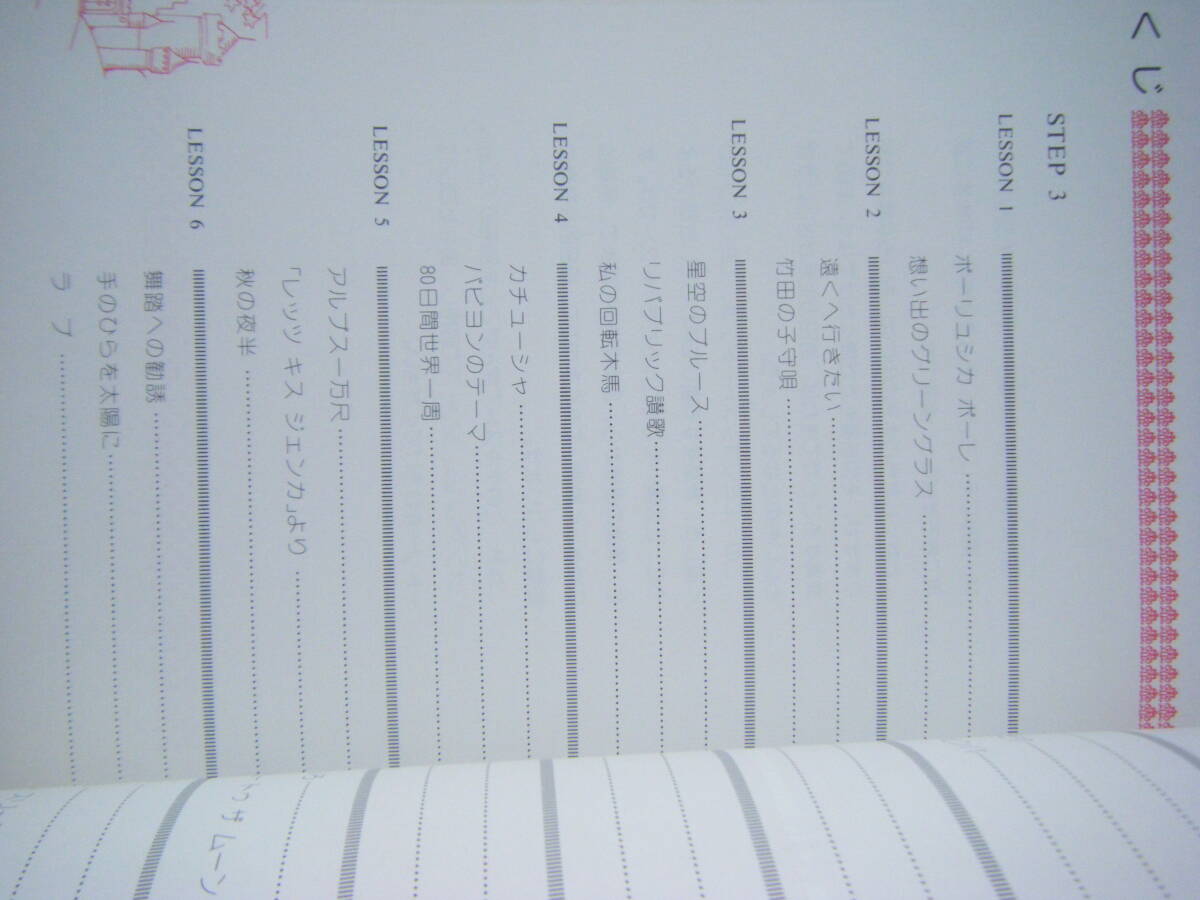 くじ
STEP 3
LESSON 1
ポーリュシカ ポーレ
想い出のグリーングラス
LESSON 2
遠くへ行きたい
竹田の子守唄
LESSON 3
星空のブルース
リパブリック讃歌
私の回転木馬
LESSON 4
カチューシャ
パピヨンのテーマ
80日間世界一周
LESSON 5
アルプス一万尺
「レッツ キス ジェンカ」より
秋の夜半
LESSON 6
舞踏への勧誘
手のひらを太陽に
ラブ
ムーン